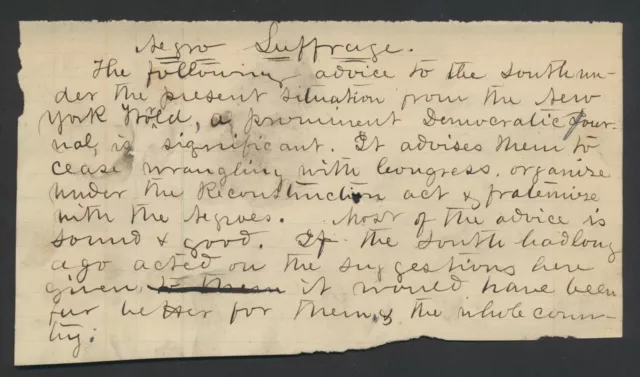 Negro Suffrage.
The following advice to the South un-
der the present situation from the New
York World, a prominent Democratic jour-
nal, is significant. It advises them to
cease wrangling with Congress, organize
under the Reconstruction act & fraternize
with the Negroes. Most of the advice is
sound & good. If the South had long
ago acted on the suggestions here
given to them it would have been
far better for them & the whole coun-
try.